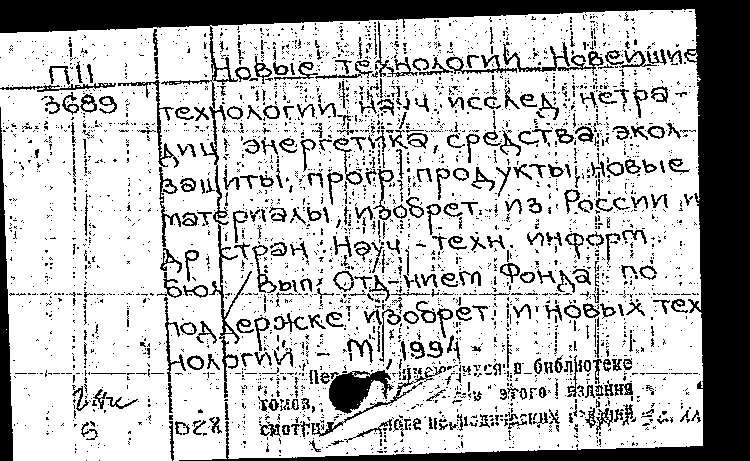 П11 Новые технологии. Новейшие
3689 технологии, науч. исслед., нетра-
диц. энергетика, средства экол.
защиты, прогр. продукты, новые
материалы, изобрет. из России и
др. стран. Науч.-техн. информ.
бюл. Вып. Отд-нием Фонда по
поддержке изобрет. и новых тех
нологий. - М., 1994 -
в библиотеке
томов, этого издания
6 D28 смотри